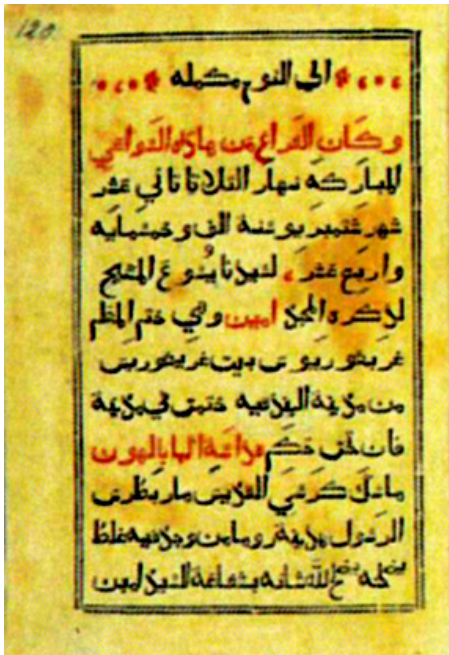 120
الى النوم مكمله
وكان الفراغ من هاذه السواعي
المباركه نهار الثلاثا ثاني عشر
شهر شتمبريو سنة الف وخمسمايه
واربع عشر ، لسيدنا يسوع المسيح
لذكره المجد امين وفي ختم المعلم
غريغوريوس بيت غريغوريس
من مدينة البندقيه ختمت في مدينة
فان تحت حكم قداسة البابا ليون
ماسك كرسي القديس مار بطرس
الرسول بمدينة روما من وجد فيه غلط
يصلحه يصلح الله شانه بشفاعة السيدة امين